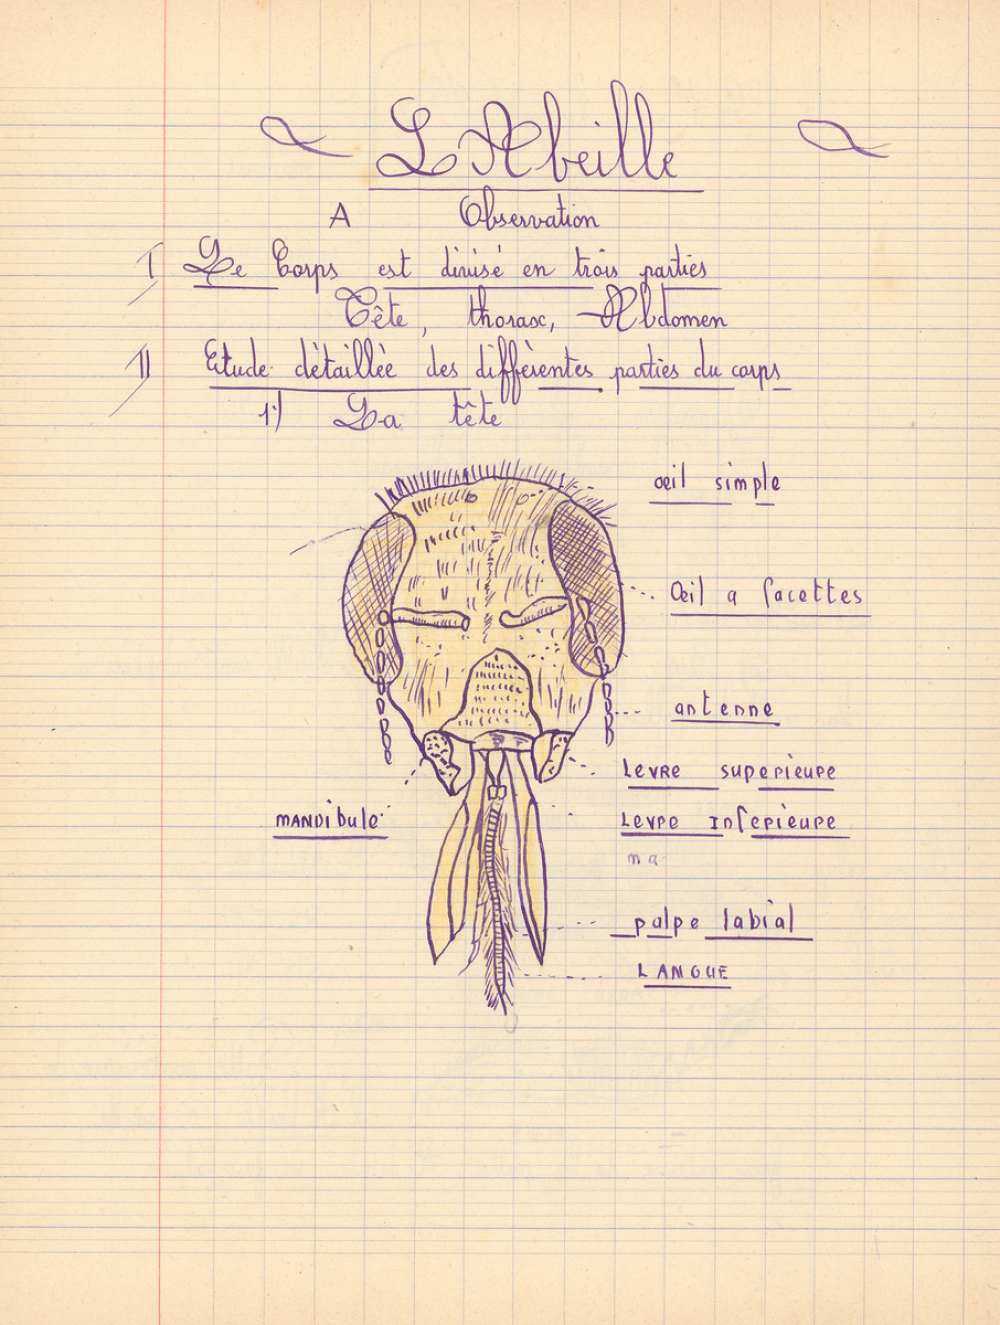 L'Abeille
A Observation
I Le Corps est divisé en trois parties
Tête, thorax, Abdomen
II Etude détaillèe des diffèrentes parties du corps
1) La tête
œil simple
Œil a facettes
antenne
Levre superieure
mandibule
Levre Inferieure
ma
palpe labial
LANGUE